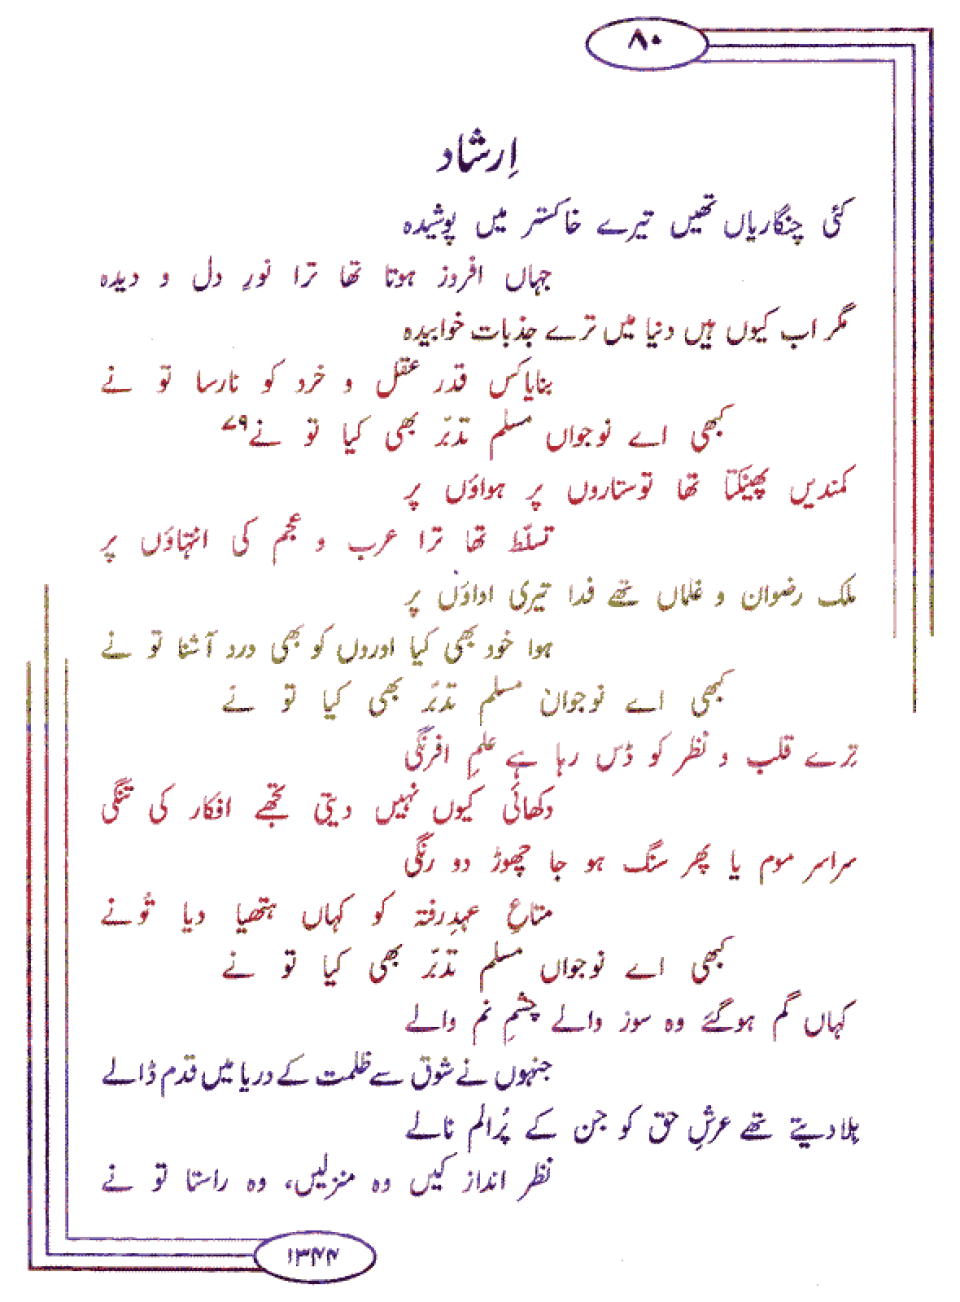 ۸۰
اِرشاد
کئی چنگاریاں تھیں تیرے خاکستر میں پوشیدہ
جہاں افروز ہوتا تھا ترا نورِ دل و دیدہ
مگر اب کیوں ہیں دنیا میں ترے جذبات خوابیدہ
بنایا کس قدر عقل و خرد کو نارسا تو نے
کبھی اے نوجواں مسلم تدبّر بھی کیا تو نے۷۹
کمندیں پھینکتا تھا تو ستاروں پر ہواؤں پر
تسلّط تھا ترا عرب و عجم کی انتہاؤں پر
ملک رضوان و غلماں تھے فدا تیری اداؤں پر
ہوا خود بھی کیا اوروں کو بھی درد آشنا تو نے
کبھی اے نوجوان مسلم تدبّر بھی کیا تو نے
ترے قلب و نظر کو ڈس رہا ہے علمِ افرنگی
دکھائی کیوں نہیں دیتی تجھے افکار کی تنگی
سراسر موم یا پھر سنگ ہو جا چھوڑ دو رنگی
متاعِ عہدِ رفتہ کو کہاں ہتھیا دیا تُو نے
کبھی اے نوجواں مسلم تدبّر بھی کیا تو نے
کہاں گم ہوگئے وہ سوز والے چشمِ نم والے
جنہوں نے شوق سے ظلمت کے دریا میں قدم ڈالے
ہلا دیتے تھے عرشِ حق کو جن کے پُرالم نالے
نظر انداز کیں وہ منزلیں، وہ راستا تو نے
۱۳۴۴